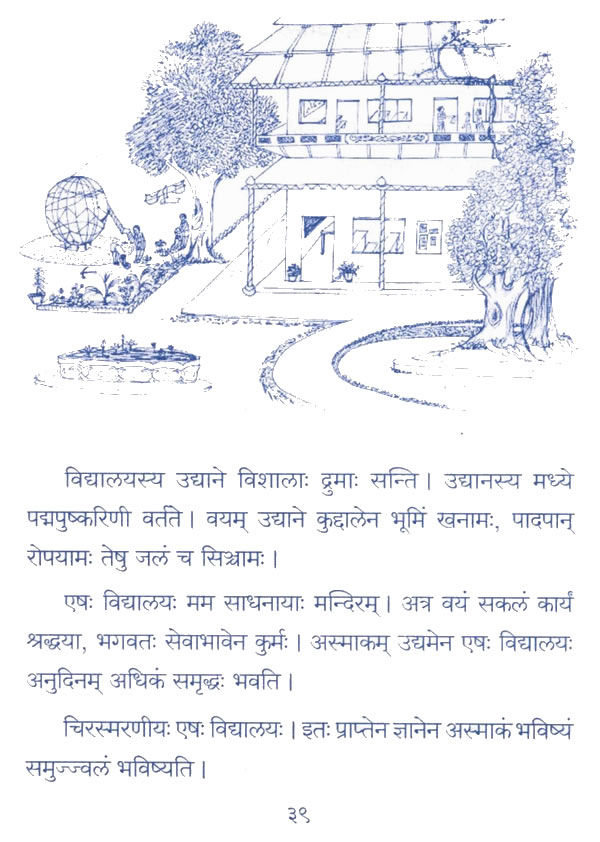 विद्यालयस्य उद्याने विशालाः द्रुमाः सन्ति । उद्यानस्य मध्ये
पद्मपुष्करिणी वर्तते । वयम् उद्याने कुद्दालेन भूमिं खनामः, पादपान्
रोपयामः तेषु जलं च सिञ्चामः ।
एषः विद्यालयः मम साधनायाः मन्दिरम् । अत्र वयं सकलं कार्यं
श्रद्धया, भगवतः सेवाभावेन कुर्मः । अस्माकम् उद्यमेन एषः विद्यालयः
अनुदिनम् अधिकं समृद्धः भवति ।
चिरस्मरणीयः एषः विद्यालयः । इतः प्राप्तेन ज्ञानेन अस्माकं भविष्यं
समुज्ज्वलं भविष्यति ।
३९